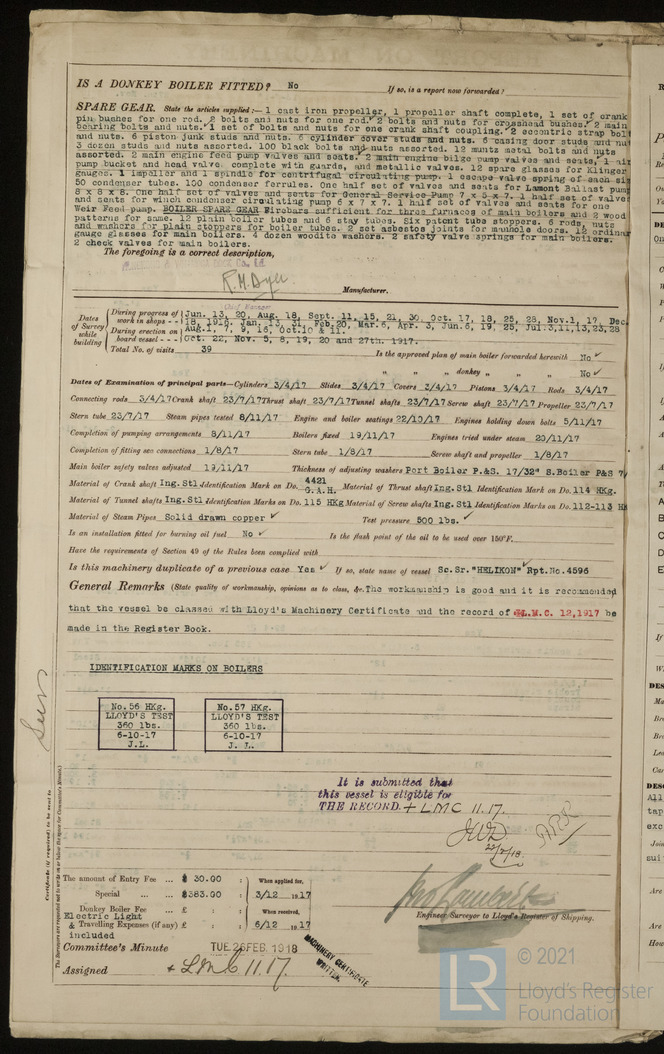 IS A DONKEY BOILER FITTED? No If so, is a report now forwarded?
SPARE GEAR. State the articles supplied:— 1 cast iron propeller, 1 propeller shaft complete, 1 set of crank
pin bushes for one rod. 2 bolts and nuts for one rod. 2 bolts and nuts for crosshead bushes. 2 main
bearing bolts and nuts. 1 set of bolts and nuts for one crank shaft coupling. 2 eccentric strap bolt
and nuts. 6 piston junk studs and nuts. 6 cylinder cover studs and nuts. 6 casing door studs and nut
3 dozen studs and nuts assorted. 100 black bolts and nuts assorted. 12 muntz metal bolts and nuts
assorted. 2 main engine feed pump valves and seats. 2 main engine bilge pump valves and seats, 1 air
pump bucket and head valve. complete with guards, and metallic valves. 12 spare glasses for Klinger
gauges. 1 impeller and 1 spindle for centrifugal circulating pump. 1 escape valve spring of each siz
50 condenser tubes. 100 condenser ferrules. One half set of valves and seats for Lamont Ballast pump
8 x 8 x 8. One half set of valves and seats for General Service Pump 7 x 5 x 7. 1 half set of valves
and seats for winch condenser circulating pump 6 x 7 x 7. 1 half set of valves and seats for one
Weir Feed pump. BOILER SPARE GEAR Firebars sufficient for three furnaces of main boilers and 2 wood
patterns for same. 12 plain boiler tubes and 6 stay tubes. Six patent tube stoppers. 6 rods, nuts
and washers for plain stoppers for boiler tubes. 2 set asbestos joints for manhole doors. 12 ordinar
gauge glasses for main boilers. 4 dozen woodite washers. 2 safety valve springs for main boilers.
2 check valves for main boilers.
The foregoing is a correct description,
R. M. Dyer
Chief Manager Manufacturer.
Dates of Survey while building
During progress of work in shops - - Jun. 13, 20, Aug. 18, Sept. 11, 15, 21, 30, Oct. 17, 18, 25, 28, Nov.1, 17, Dec.
18, 1916, Jan. 13, 31, Feb.20, Mar.6, Apr. 3, Jun.6, 19, 25, Jul.3,11,13,23,28
During erection on board vessel - - - Aug.1, 7, 9, 16, Oct.10 & 11.
Oct. 22, Nov. 5, 8, 19, 20 and 27th. 1917.
Total No. of visits 39 Is the approved plan of main boiler forwarded herewith No
" " " donkey " " " No
Dates of Examination of principal parts—Cylinders 3/4/17 Slides 3/4/17 Covers 3/4/17 Pistons 3/4/17 Rods 3/4/17
Connecting rods 3/4/17 Crank shaft 23/7/17 Thrust shaft 23/7/17 Tunnel shafts 23/7/17 Screw shaft 23/7/17 Propeller 23/7/17
Stern tube 23/7/17 Steam pipes tested 8/11/17 Engine and boiler seatings 22/10/17 Engines holding down bolts 5/11/17
Completion of pumping arrangements 8/11/17 Boilers fixed 19/11/17 Engines tried under steam 20/11/17
Completion of fitting sea connections 1/8/17 Stern tube 1/8/17 Screw shaft and propeller 1/8/17
Main boiler safety valves adjusted 19/11/17 Thickness of adjusting washers Port Boiler P.&S. 17/32" S.Boiler P&S 7/
Material of Crank shaft Ing.Stl Identification Mark on Do. 4421 G.A.H. Material of Thrust shaft Ing.Stl Identification Mark on Do. 114 HKg.
Material of Tunnel shafts Ing.Stl Identification Marks on Do. 115 HKg Material of Screw shafts Ing.Stl Identification Marks on Do. 112-113 HK
Material of Steam Pipes Solid drawn copper Test pressure 500 lbs.
Is an installation fitted for burning oil fuel No Is the flash point of the oil to be used over 150°F.
Have the requirements of Section 49 of the Rules been complied with
Is this machinery duplicate of a previous case Yes If so, state name of vessel Sc.Sr."HELIKON" Rpt.No.4596
General Remarks (State quality of workmanship, opinions as to class, &c. The workmanship is good and it is recommended
that the vessel be classed with Lloyd's Machinery Certificate and the record of L.M.C. 12,1917 be
made in the Register Book.
IDENTIFICATION MARKS ON BOILERS
No.56 HKg. No.57 HKg.
LLOYD'S TEST LLOYD'S TEST
360 lbs. 360 lbs.
6-10-17 6-10-17
J.L. J. L.
Seers
It is submitted that
this vessel is eligible for
THE RECORD. + LMC 11.17.
JWD. ARR
22/2/18.
Certificate (if required) to be sent to
The Surveyors are requested not to write on or below the space for Committee's Minute.
The amount of Entry Fee ... $ 30.00 : When applied for,
Special ... ... $383.00 : 3/12 1917
Donkey Boiler Fee ... £ : : When received,
Electric Light
& Travelling Expenses (if any) £ : : 6/12 1917
included
Jno Lambert
Engineer Surveyor to Lloyd's Register of Shipping.
Committee's Minute TUE. 26 FEB. 1918
Assigned + L.M.C 11.17.
MACHINERY CERTIFICATE
WRITTEN.
© 2021
LR Lloyd's Register
Foundation